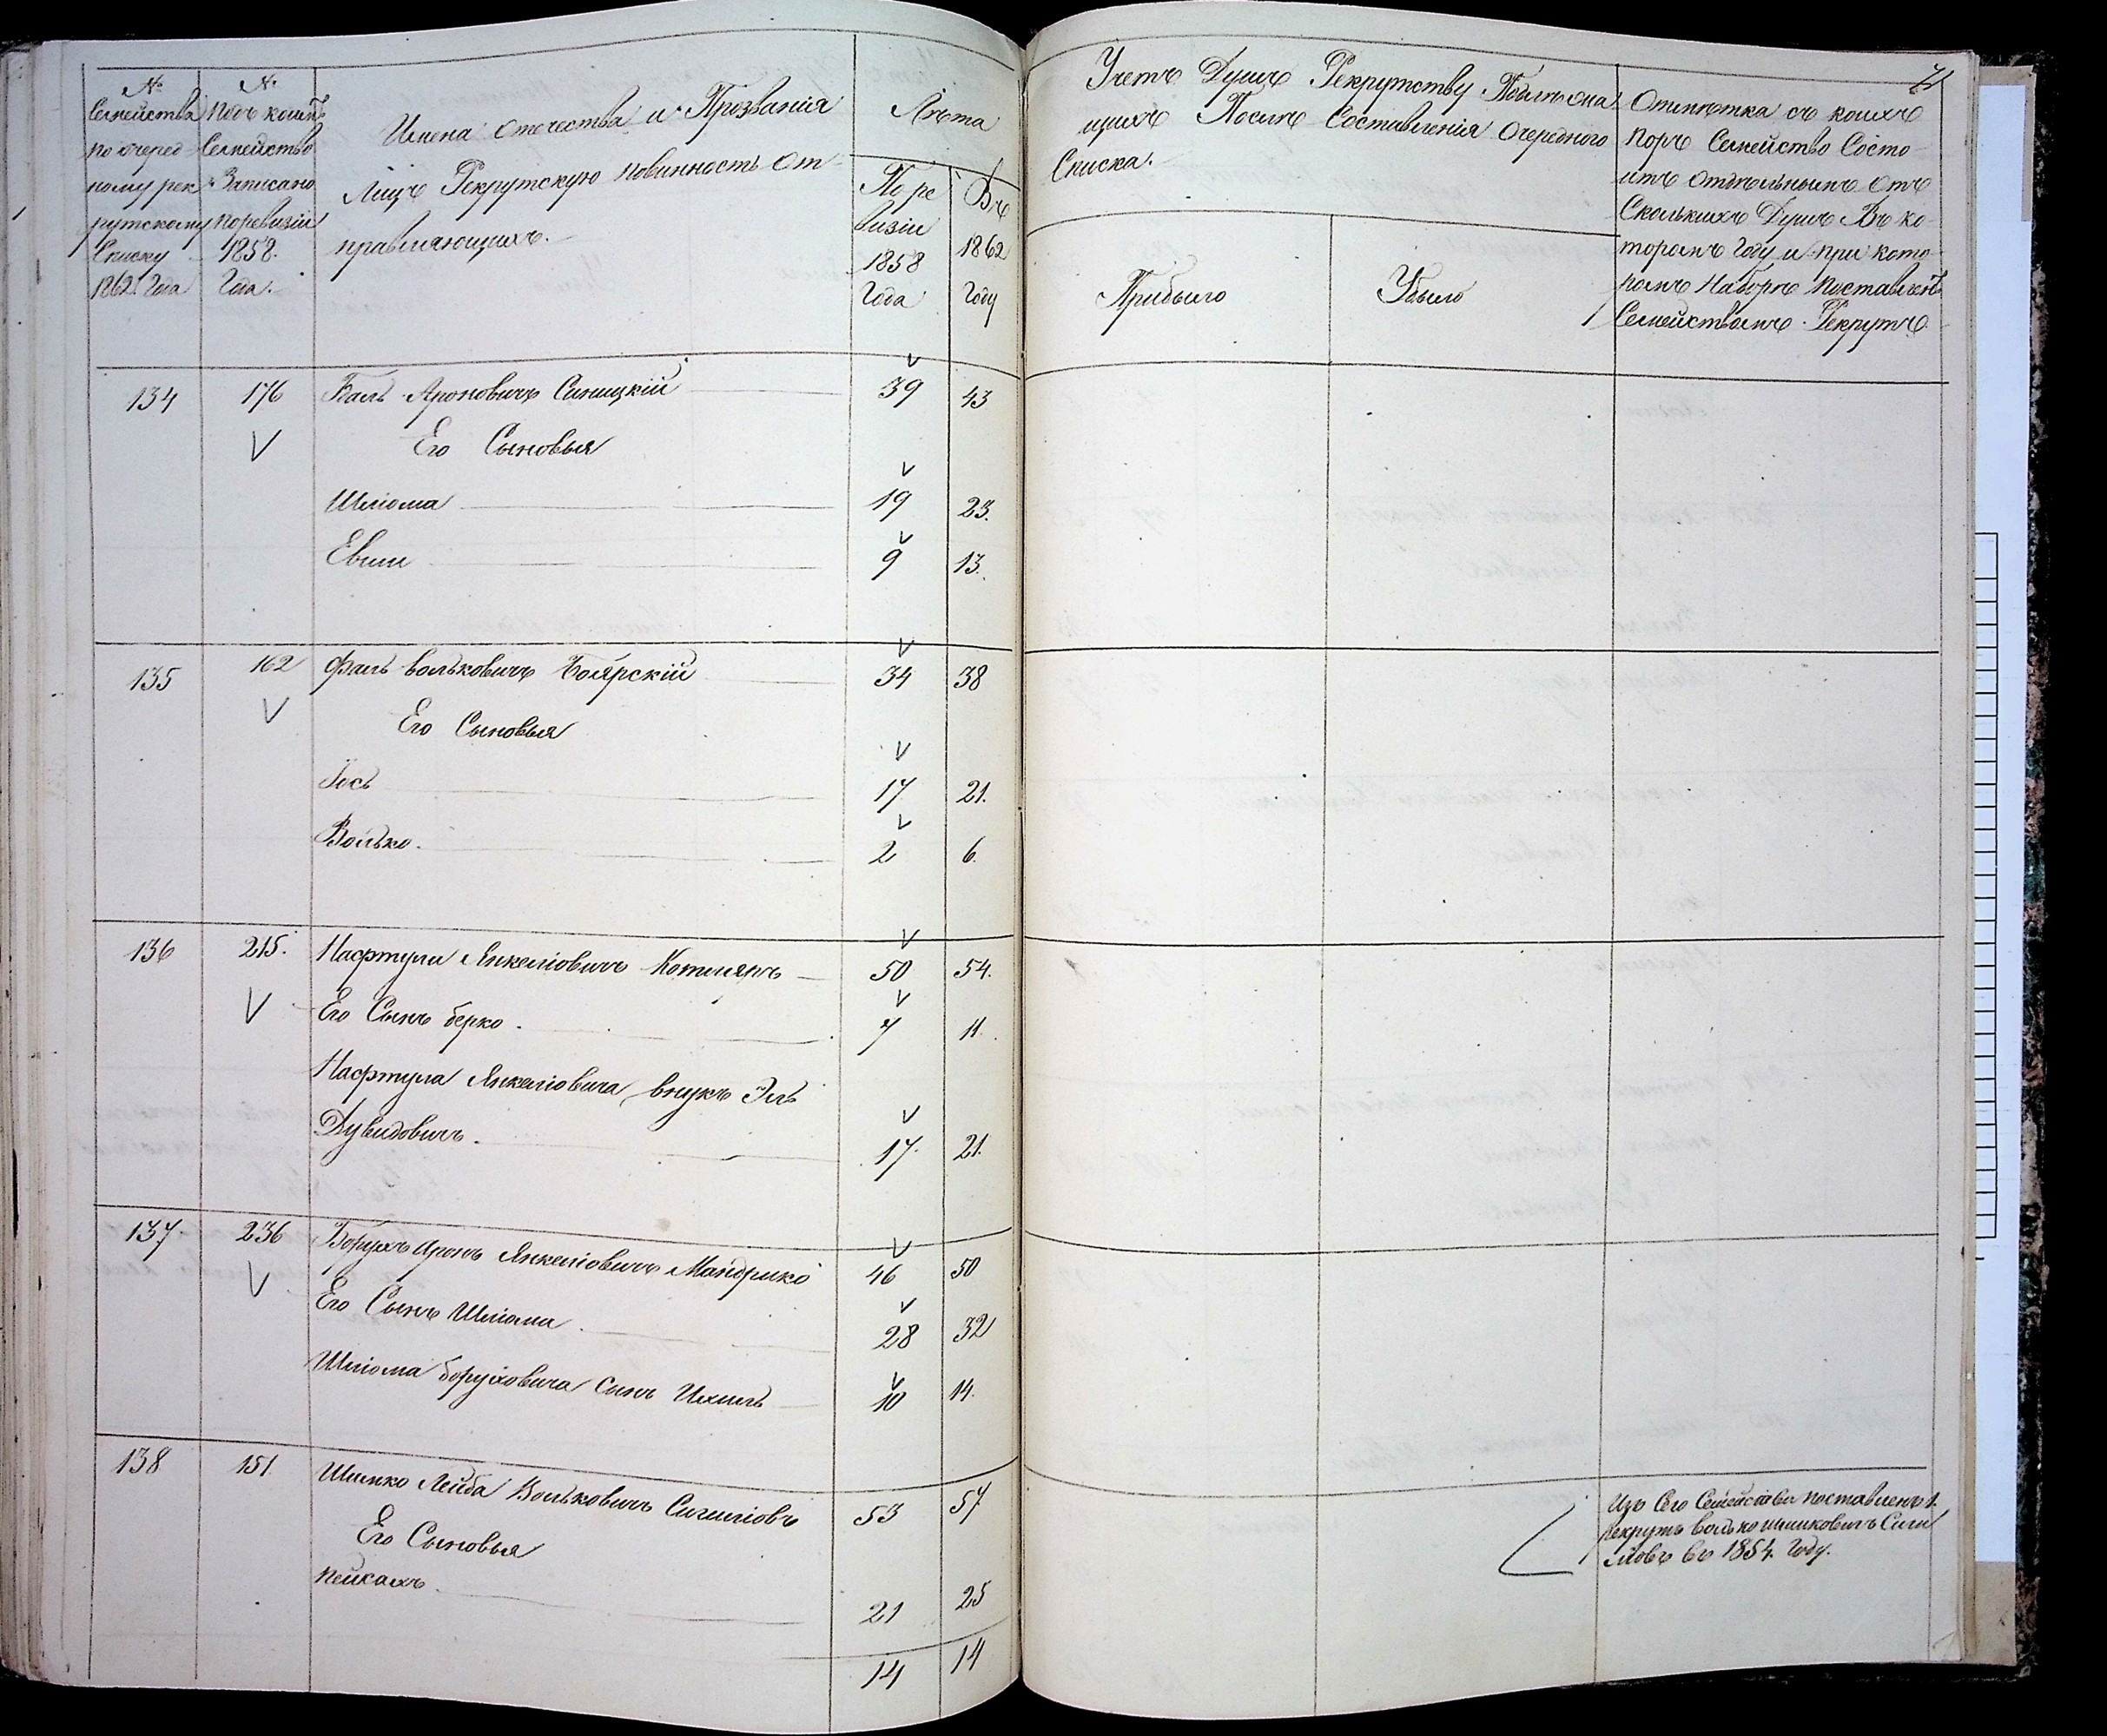 №
Семейства
по очеред
ному рек
рутскому
Списку
1862. Года
№
Подъ коимъ
Семейство
Записано
поревизіи
1858.
Года.
Имена отечества и Прозванія
Лицъ Рекрутскую повинность от
правляющихъ.
Лѣта
По ре
визіи
1858
Года
Въ
1862
Году
Учетъ Душъ Рекрутству Подлѣжа
щихъ Послѣ Составленія Очереднаго
Списка.
Прибыло
Убыло
71
Отмѣтка съ коихъ
поръ Семейство Состо
итъ отдѣльнымъ отъ
Сколькихъ Душъ Въ ко
торомъ Году и при кото
ромъ Наборѣ поставленъ
Семействомъ Рекрутъ.
134 176 Ароновичъ Синицкій 39 43
Его Сыновья
Шліома 19 23.
Евши 9 13.
135 162 Фаль вольковичъ Боярскій 34 38
Его Сыновья
Іось 17 21.
Волько. 2 6.
136 215. Нафтула Янкеліовичъ Котляръ 50 54.
Его Сынъ берко. 7 11.
Нафтула Янкеліовича внукъ Эль
Дувидовичъ. 17. 21.
137. 236 Борухъ аронъ Янкеліовичъ Мандрико 46 50
Его Сынъ Шліома 28 32
Шліома боруховича сынъ Ихиль 10 14.
138 151. Шимко Лейба Вольковичъ Сигаловъ 53 57
Его Сыновья
Пейсахъ. 21 25
14 14
Изъ Сего Семейства поставленъ 1.
рекрутъ волько шимковичъ Сига
ловъ въ 1854. Году.